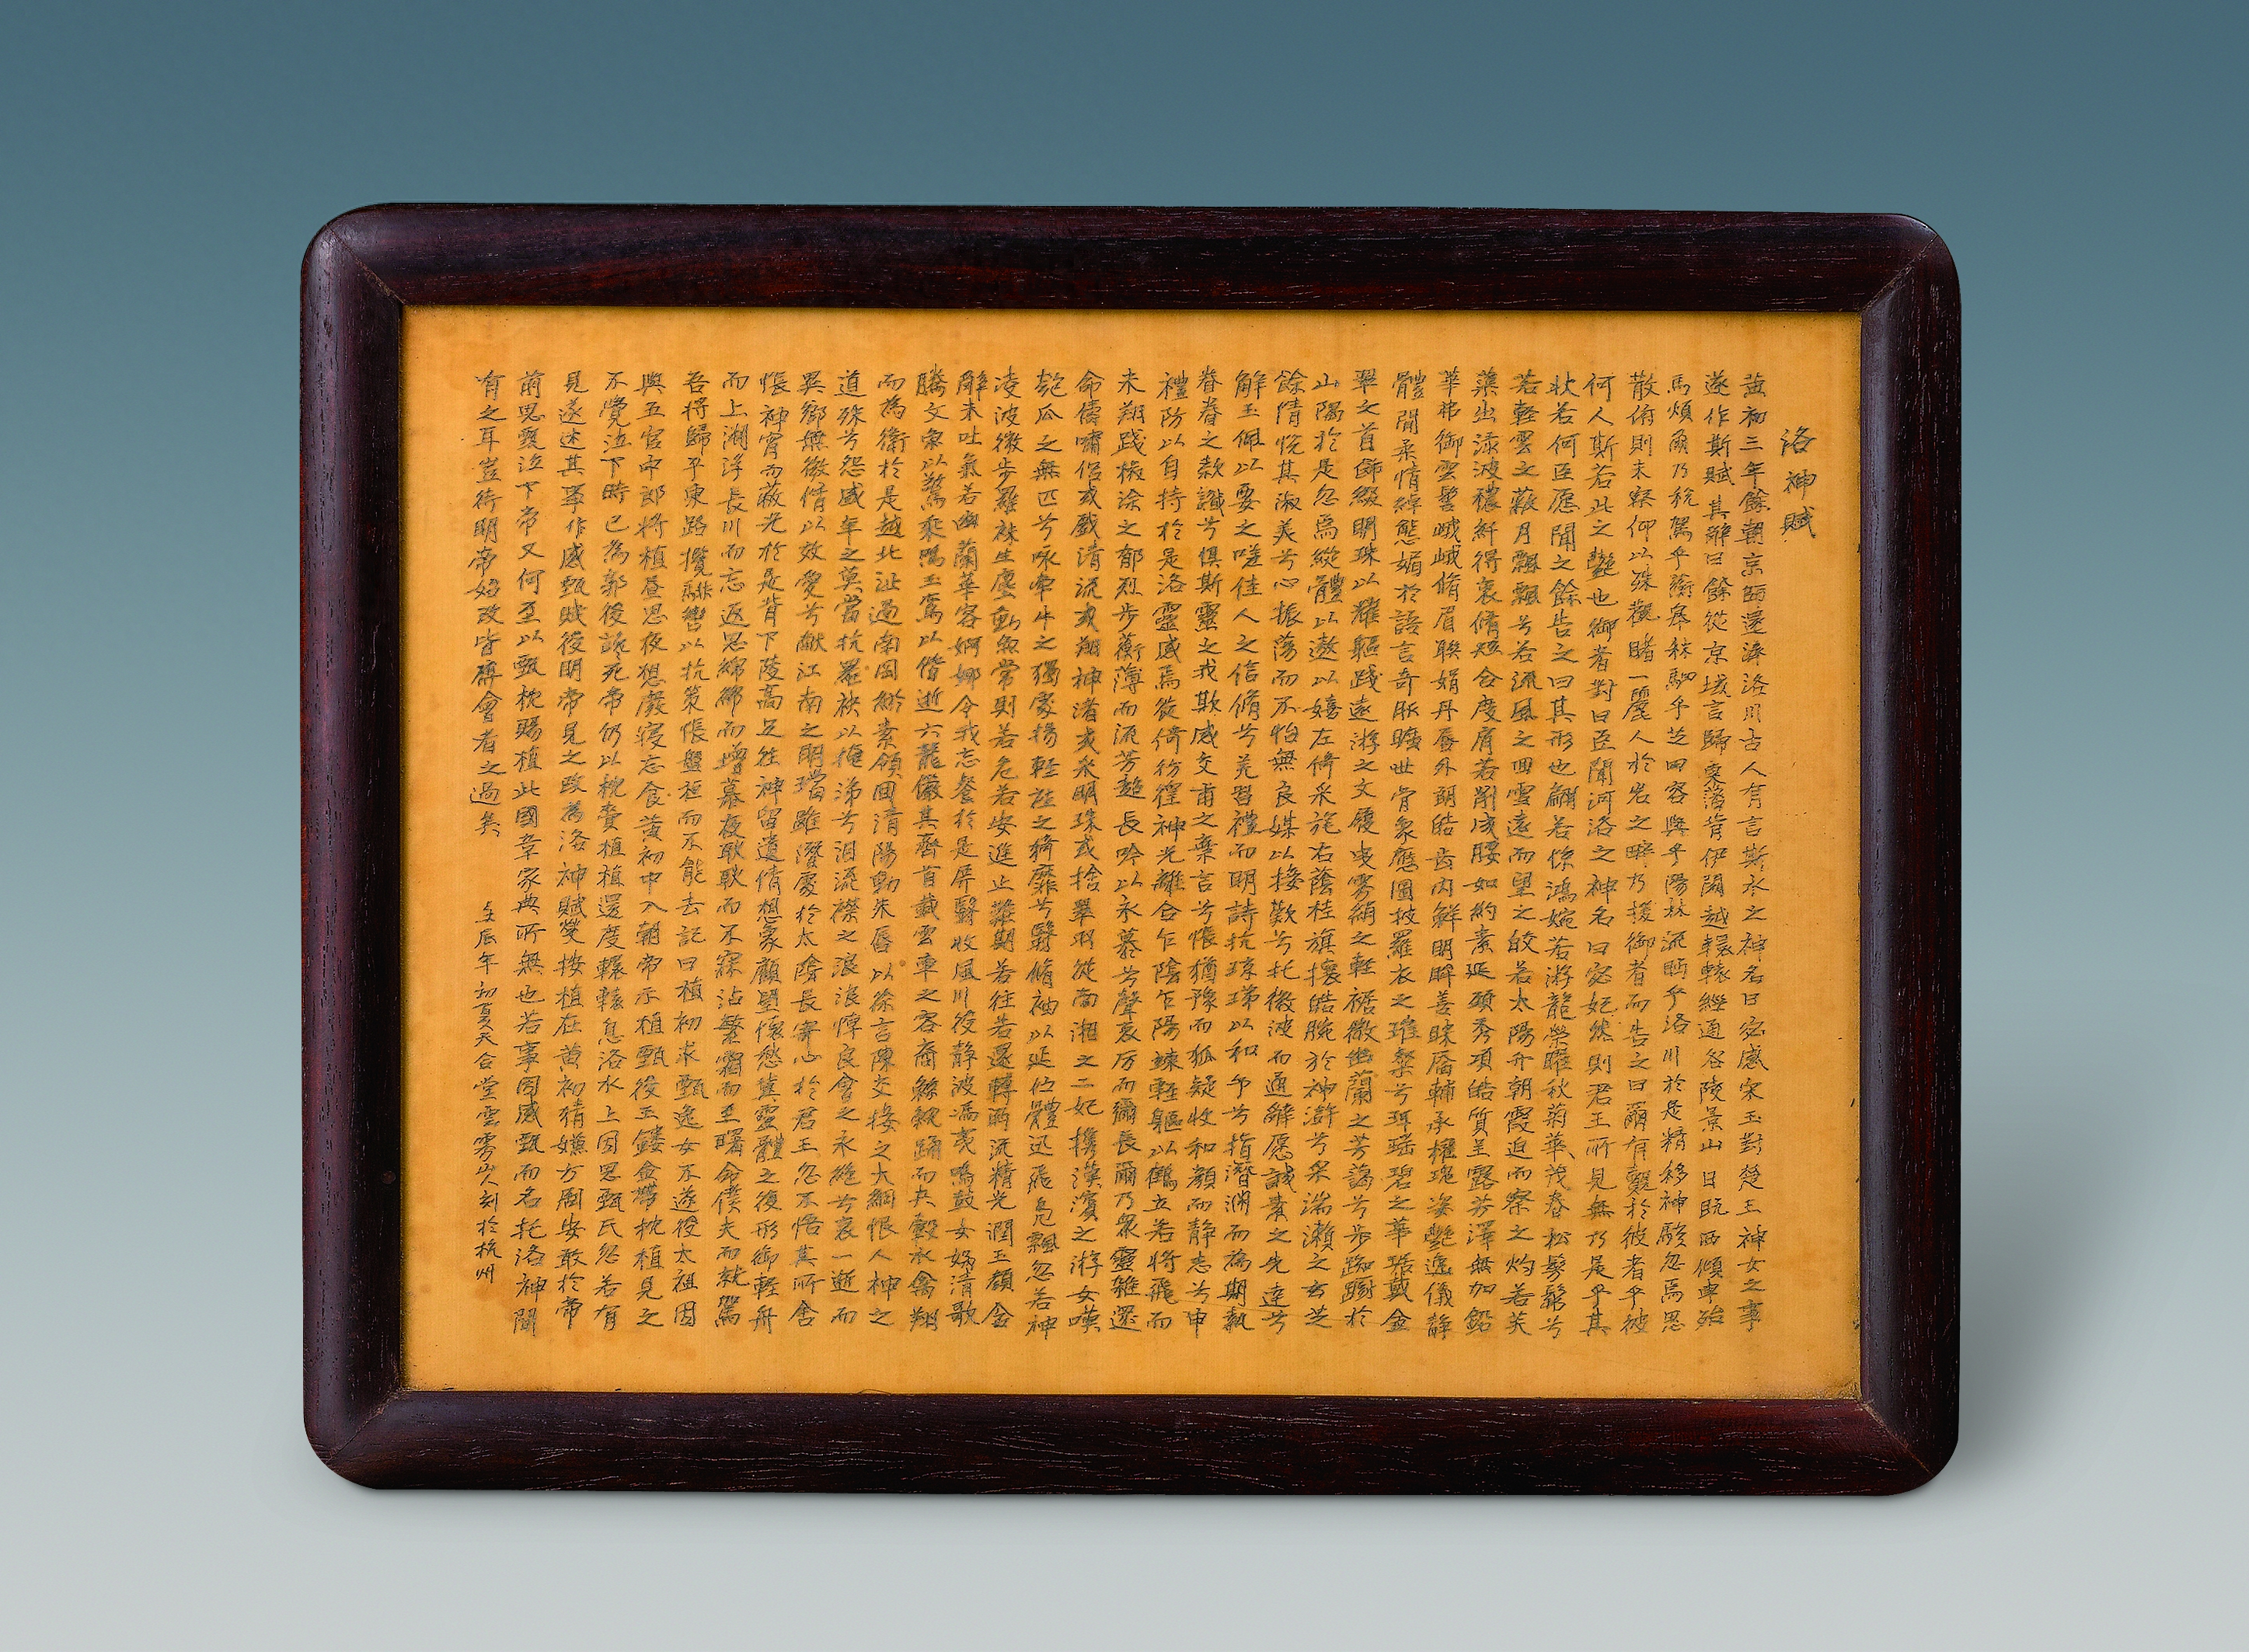 洛神賦
黃初三年餘朝京師還濟洛川古人有言斯水之神名曰宓感宋玉對楚王神女之事
遂作斯賦其辭曰餘從京域言歸東藩背伊闕越轘轅經通谷陵景山日既西傾車殆
馬煩爾乃稅駕乎蘅皋秣駟乎芝田容與乎陽林流眄乎洛川於是精移神駭忽焉思
散俯則未察仰以殊觀睹一麗人於岩之畔乃援御者而告之曰爾有覿於彼者乎彼
何人斯若此之艷也御者對曰臣聞河洛之神名曰宓妃然則君王所見無乃是乎其
狀若何臣愿聞之餘告之曰其形也翩若惊鴻婉若游龍榮曜秋菊華茂春松髣髴兮
若輕雲之蔽月飄飄兮若流風之回雪遠而望之皎若太陽升朝霞迫而察之灼若芙
蕖出淥波穠纤得衷脩短合度肩若削成腰如約素延頸秀項皓質呈露芳澤無加鉛
華弗御雲髻峨峨脩眉聯娟丹唇外朗皓齿內鮮明眸善睞靨輔承權瑰姿艷逸儀静
體閒柔情綽態媚於語言奇服曠世骨象應圖披羅衣之璀粲兮珥瑶碧之華琚戴金
翠之首飾綴明珠以耀軀踐遠游之文履曳霧綃之輕裾微幽蘭之芳藹兮步踟躕於
山隅於是忽焉縱體以遨以嬉左倚采旄右蔭桂旗攘皓腕於神滸兮采湍瀨之玄芝
餘情悦其淑美兮心振蕩而不怡無良媒以接歡兮托微波而通辭愿誠素之先達兮
解玉佩以要之嗟佳人之信脩兮羌習禮而明詩抗瓊珶以和予兮指潛淵而為期執
眷眷之款讖兮俱斯靈之我欺感交甫之棄言兮悵猶豫而狐疑收和顏而静志兮申
禮防以自持於是洛靈感焉徙倚彷徨神光離合乍陰乍陽竦輕軀以鶴立若將飛而
未翔踐椒涂之郁烈步蘅薄而流芳超長吟以永慕兮聲哀厉而彌長爾乃衆靈雜還
命儔嘯侣或戲清流或翔神渚或采明珠或捨翠羽從南湘之二妃攜漢濱之游女嘆
匏瓜之無匹兮咏牵牛之獨處揚輕袿之猗靡兮翳脩袖以延伫體迅飛凫飄忽若神
淩波微步羅袜生塵動無常則若危若安進止難期若往若還轉眄流精光潤玉顏含
辭未吐氣若幽蘭華容婀娜令我忘餐於是屏翳收風川後静波馮夷鳴鼓女娲清歌
騰文魚以驚乘鳴玉鸞以偕逝六龍儼其齊首載雲車之容裔鯨鯢踊而夾轂水禽翔
而為衛於是越北沚過南岡紆素領回清陽動朱唇以徐言陳交接之大綱恨人神之
道殊兮怨盛年之莫當抗羅袂以掩涕兮泪流襟之浪浪悼良會之永絕兮哀一逝而
異鄉無微情以效愛兮献江南之明璫雖潛處於太陰長寄心於君王忽不悟其所舍
悵神宵而蔽光於是背下陵高足往神留遺情想象顧望懷愁冀靈體之復形御輕舟
而上溯浮長川而忘返思綿綿而增慕夜耿耿而不寐沾繁霜而至曙命僕夫而就駕
吾將歸乎東路攬騑轡以抗策悵盤桓而不能去記曰植初求甄逸女不遂後太祖因
與五官中郎將植昼思夜想廢寝忘食黃初中入朝帝示植甄後玉鏤金帶枕植見之
不覺泣下時已為郭後讒死帝仍以枕賚植植還度轘轅息洛水上因思甄氏忽若有
見遂述其事作感甄賦後明帝見之改為洛神賦燮按植在黃初猜嫌方剧安敢於帝
前思覆泣下帝又何至以甄枕賜植此國章家典所無也若事因感甄而名托洛神間
有之耳豈待明帝始改皆傅會者之過矣 壬辰年初夏天合堂雲霧山人刻於杭州